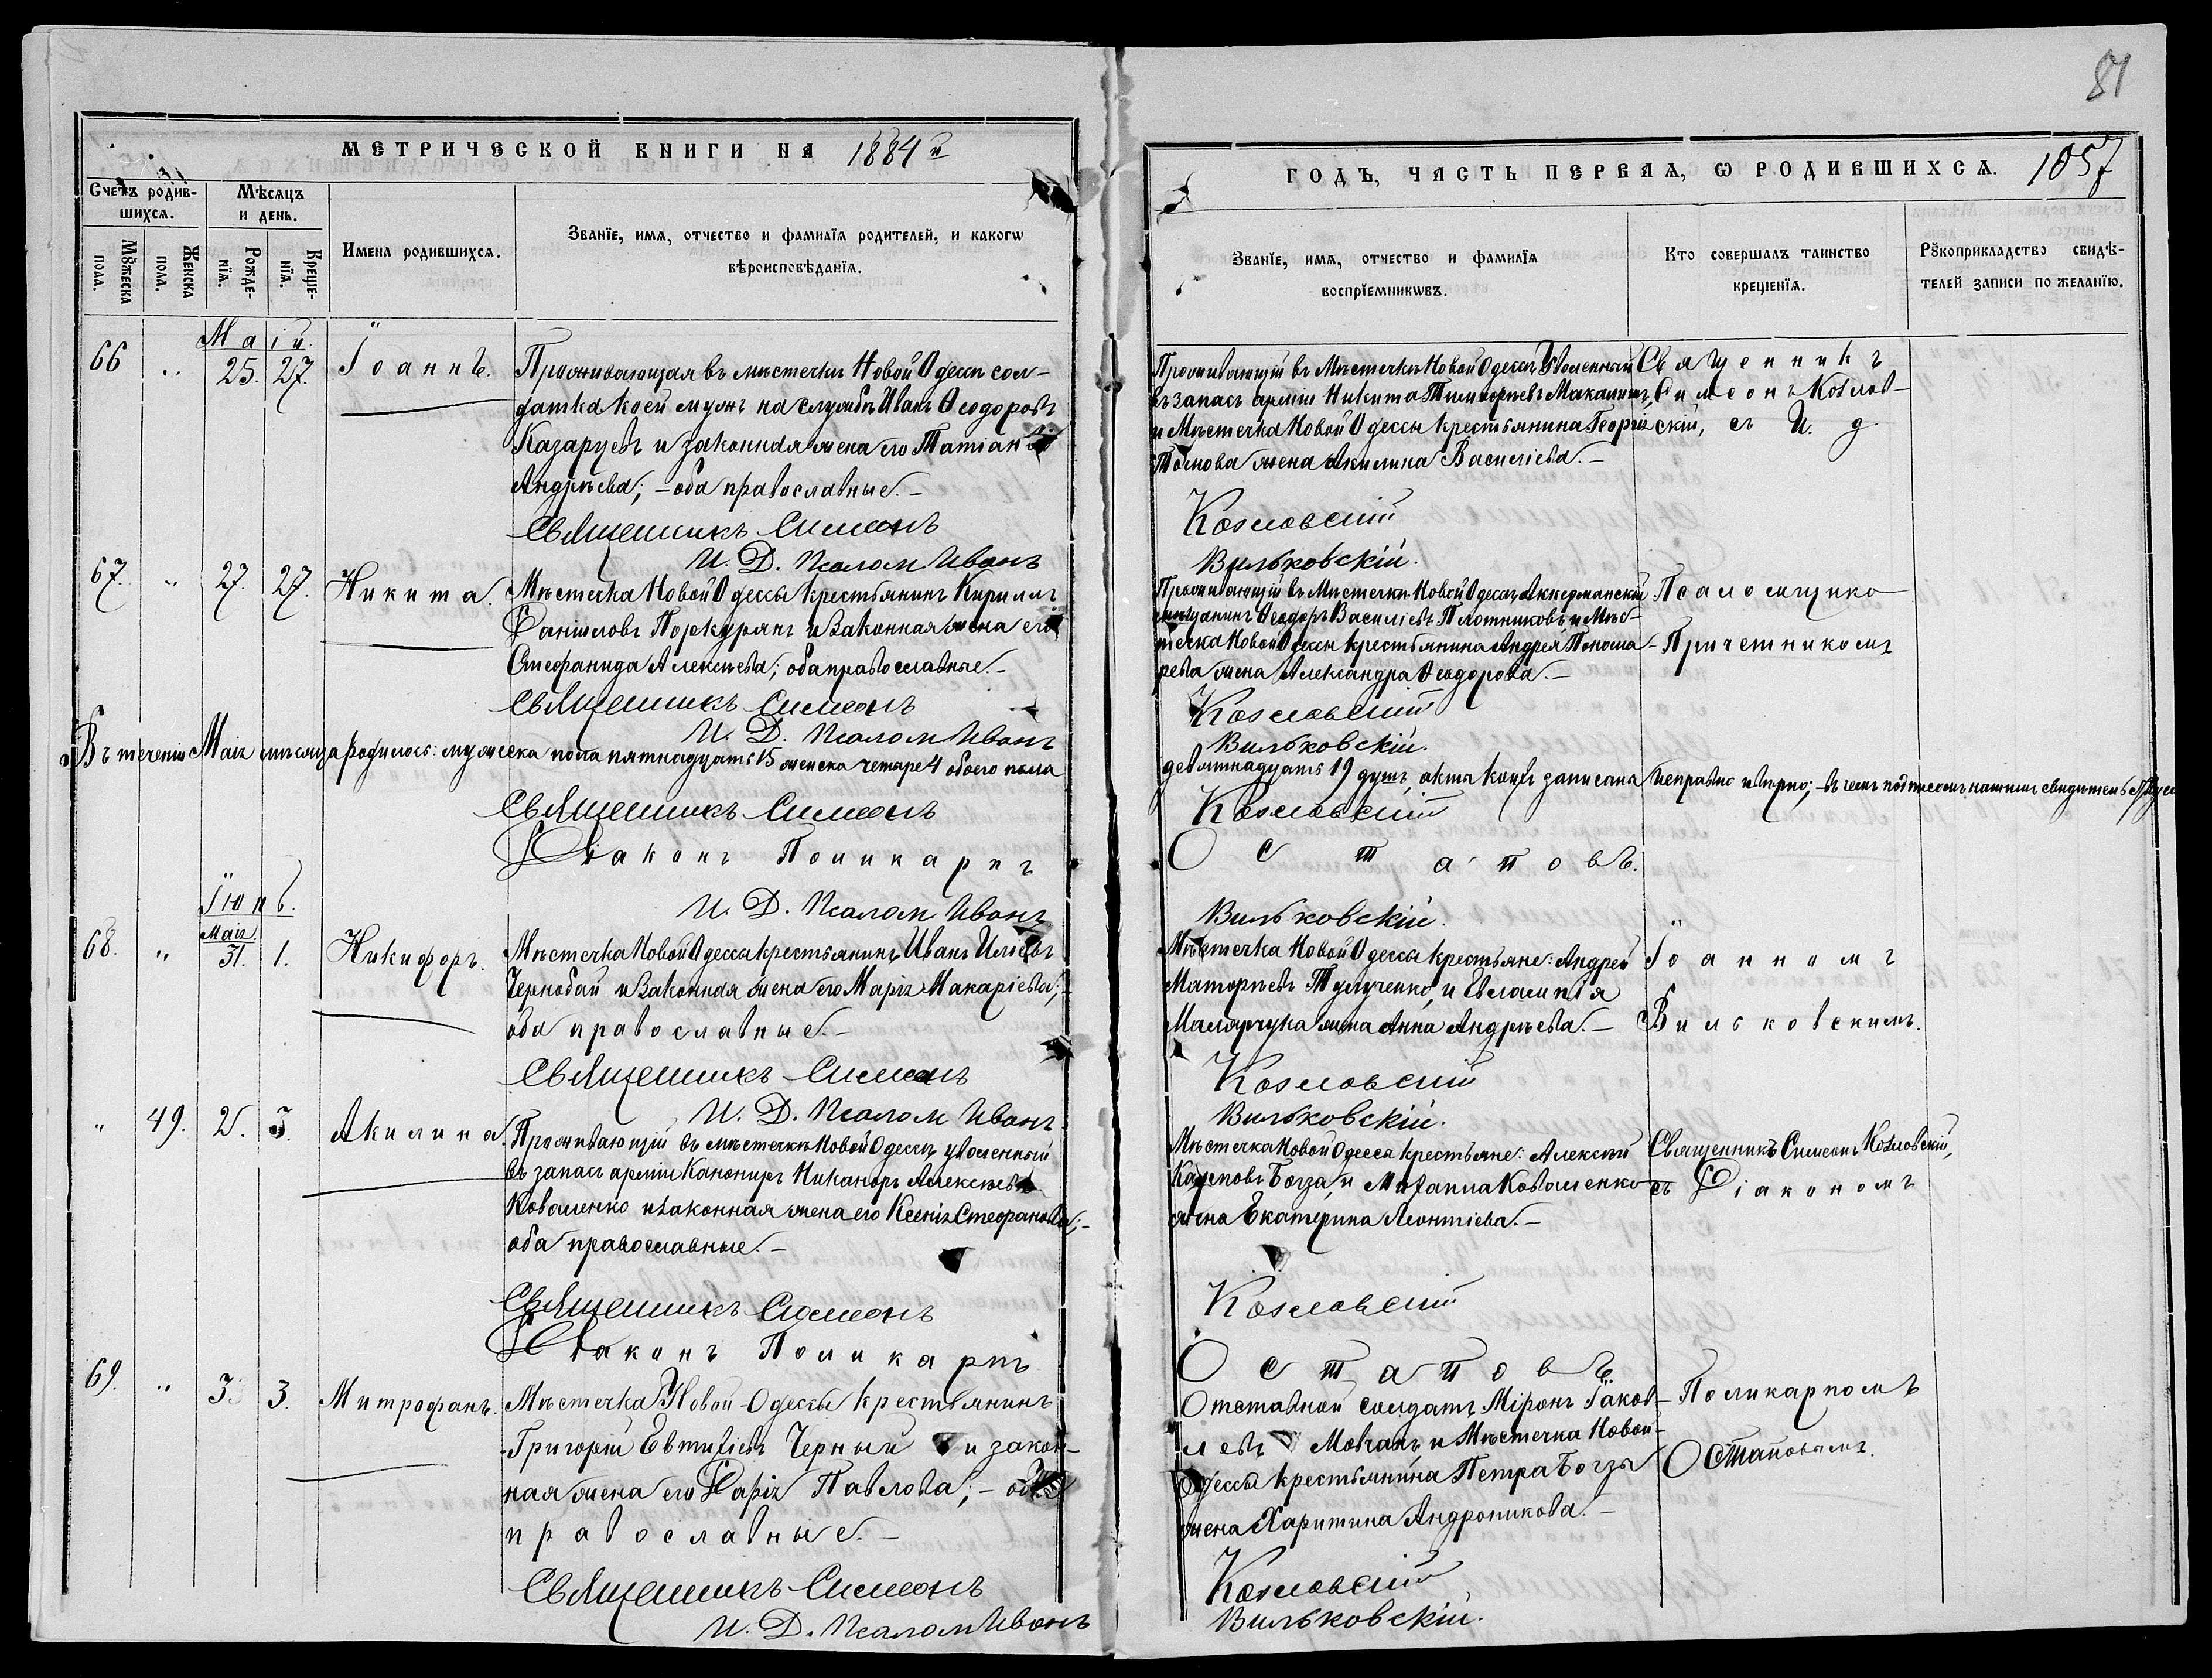 81
МЕТРИЧЕСКОЙ КНИГИ НА 1884й
ГОДЪ, ЧАСТЬ ПЕРВАЯ, Ѡ РОДИВШИХСЯ. 1057
Счетъ родив-
шихся.
Мѣсяцъ
и день.
Мꙋжеска
пола.
Женска
пола.
Рожде-
нїя.
Креще-
нїя.
Имена родившихся.
Званїе, имя, отчество и фамилїя родителей, и какогѡ
вѣроисповѣданїя.
Званїе, имя, отчество и фамилїя
воспрїемникѡвъ.
Кто совершалъ таинство
крещенїя.
Рꙋкоприкладство свидѣ-
телей записи по желанїю.
Маій.
66 „ 25. 27. Іоаннъ.
Проживающая въ мѣстечкѣ Новой Одессѣ сол-
датка коей мужъ на службѣ Иванъ Ѳеодоровъ
Казарцевъ и законная жена его Татіана
Андрѣева; – оба православные. –
Священникъ Симеонъ
И. Д. Псалом Иванъ
Проживающій въ Мѣстечкѣ Новой Одессѣ Уволенный
въ запасъ арміи Никита
и Мѣстечка Новой Одессы крестьянина Георгія
жена Акилина Василіева. –
Козловскій
Вильковскій.
Священникъ
Симеонъ Козлов-
скій, съ И. д.
67. „ 27. 27. Никита.
Мѣстечка Новой Одессы крестьянинъ Кириллъ
Даніиловъ Поркурянъ и законная жена его
Стефанида Алексѣева; оба православные. –
Священникъ Симеонъ
И. Д. Псалом Иванъ
Проживающій въ Мѣстечкѣ Новой Одессѣ Аккерманскій
мѣщанинъ Ѳеодоръ Василіевъ Плотниковъ и Мѣс-
течка Новой Одессы крестьянина Андрея Понома-
рева жена Александра Ѳеодорова. –
Козловскій
Вильковскій.
Псаломщико-
Причетникомъ
Въ теченіи Маія мѣсяца родилось: мужеска пола пятнадцать 15 женска четыре 4 обоего пола
девятнадцать 19 душъ, акта коихъ записана исправно и вѣрно; – въ чемъ подписомъ нашимъ
Священникъ Симеонъ
Діаконъ Поликарпъ
И. Д. Псалом. Иванъ
Козловскій
Остаповъ.
Вильковскій.
Іюнь.
Маія
68. „ 31. 1. Никифоръ.
Мѣстечка Новой Одессы крестьянинъ Иванъ Иліевъ
Чернобай и законная жена его Марія Макаріева;
оба православные. –
Священникъ Симеонъ
И. Д. Псалом Иванъ
Мѣстечка Новой Одессы крестьяне: Андрей
Тулученко, и Евлампія
Малярчука жена Анна Андрѣева. –
Козловскій
Вильковскій.
Іоанномъ
Вильковскимъ.
„ 49. 2. 3. Акилина.
Проживающій въ мѣстечкѣ Новой Одессѣ уволенный
въ запасъ арміи Канониръ Никаноръ Алексѣевъ
Коваленко и законная жена его Ксенія Стефанова; –
оба православные. –
Священникъ Симеонъ
Діаконъ Поликарпъ
Мѣстечка Новой Одессы крестьяне: Алексѣй
Карповъ Богза, и Михаила Коваленко
жена Екатерина Леонтіева. –
Козловскій
Остаповъ.
Священникъ Симеонъ Козловскій,
съ Діакономъ
69. „ 3. 3. Митрофанъ.
Мѣстечка Новой-Одессы крестьянинъ
Григорій Евтихіевъ Черный и закон-
ная жена его Дарія Павлова; – оба
православные. –
Священникъ Симеонъ
И. Д. Псалом Иванъ
Отставной солдатъ Міронъ Іаков-
левъ Мовчанъ и Мѣстечка Новой-
Одессы крестьянина Петра Богзы
жена Харитина Андроникова. –
Козловскій
Вильковскій.
Поликарпомъ
Остаповымъ.